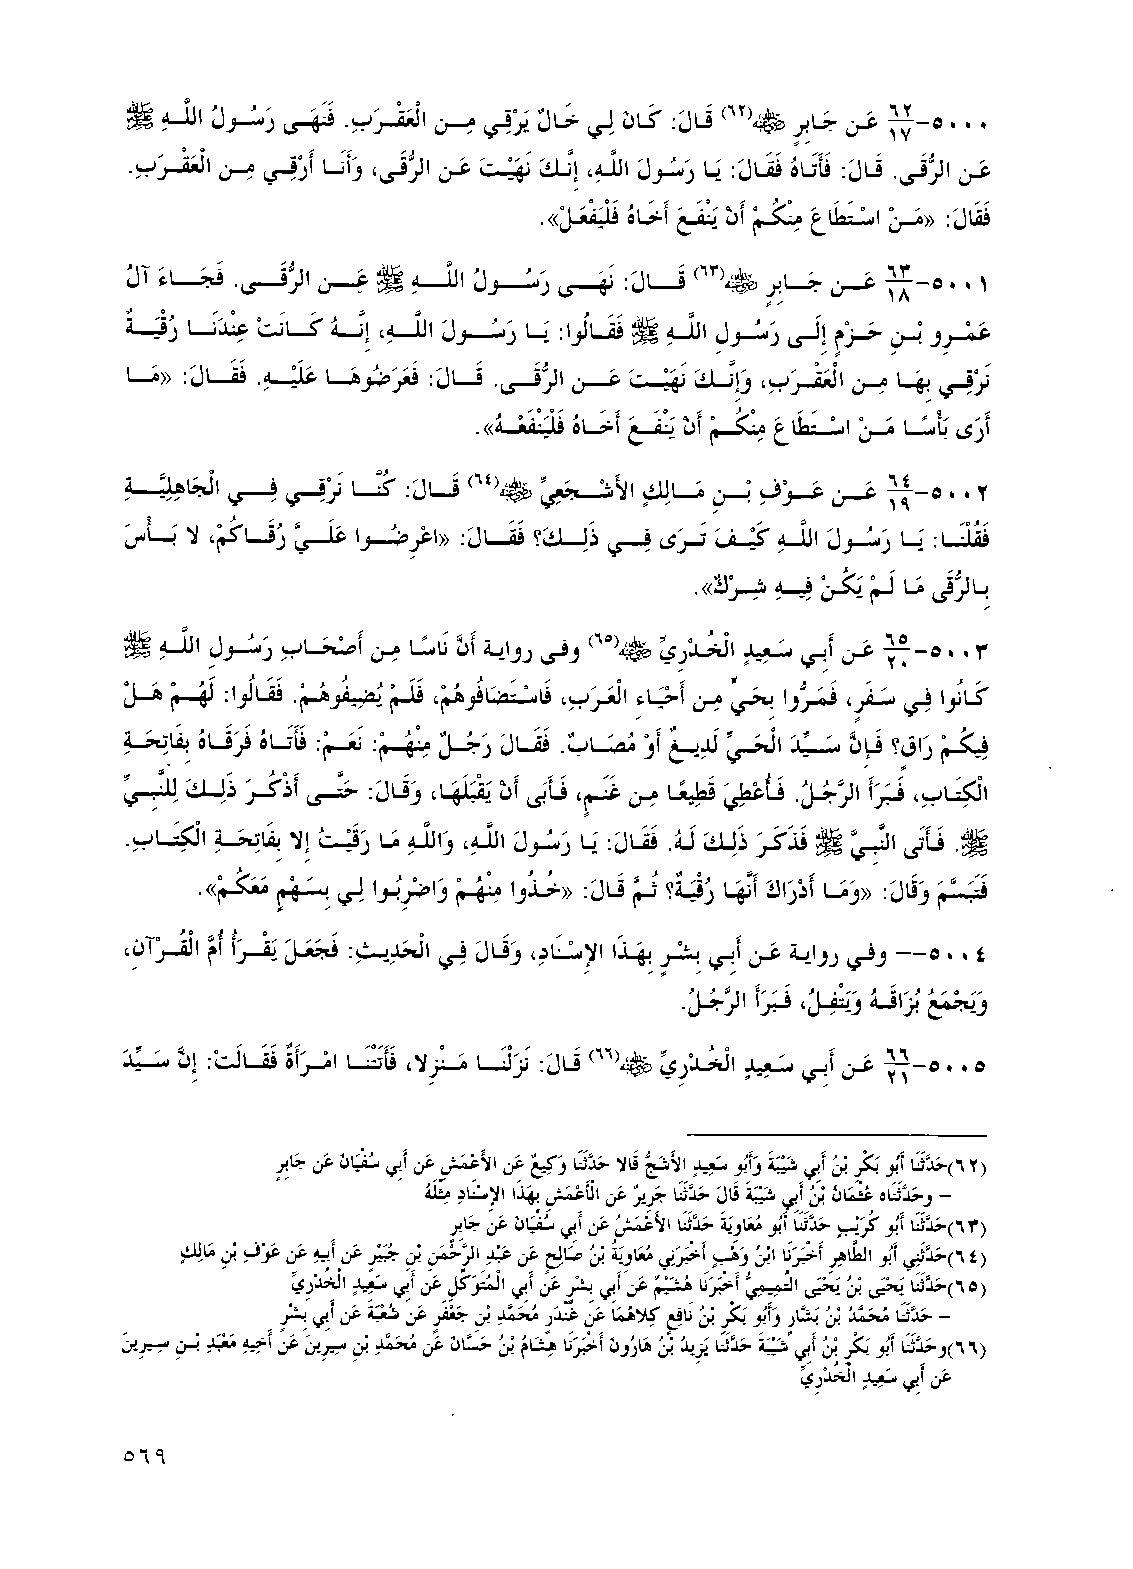 ٥٠٠٠-٦٢/١٧ عَن جَابِرٍ ﵁(٦٢) قَالَ: كَانَ لِي خَالٌ يَرْقِي مِن الْعَقْرَبِ. فَنَهَى رَسُولُ اللَّهِ ﷺ
عَن الرُّقَى. قَالَ: فَأَتَاهُ فَقَالَ: يَا رَسُولَ اللَّهِ، إِنَّكَ نَهَيْتَ عَن الرُّقَى، وَأَنَا أَرْقِي مِن الْعَقْرَبِ.
فَقَالَ: «مَنْ اسْتَطَاعَ مِنْكُمْ أَنْ يَنْفَعَ أَخَاهُ فَلْيَفْعَلْ».
٥٠٠١-٦٣/١٨ عَن جَابِرٍ ﵁(٦٣) قَالَ: نَهَى رَسُولُ اللَّهِ ﷺ عَن الرُّقَى. فَجَاءَ آلُ
عَمْرِو بْنِ حَزْمٍ إِلَى رَسُولِ اللَّهِ ﷺ فَقَالُوا: يَا رَسُولَ اللَّهِ، إِنَّهُ كَانَتْ عِنْدَنَا رُقْيَةٌ
نَرْقِي بِهَا مِن الْعَقْرَبِ، وَإِنَّكَ نَهَيْتَ عَن الرُّقَى. قَالَ: فَعَرَضُوهَا عَلَيْهِ. فَقَالَ: «مَا
أَرَى بَأْسًا مَنْ اسْتَطَاعَ مِنْكُمْ أَنْ يَنْفَعَ أَخَاهُ فَلْيَنْفَعْهُ».
٥٠٠٢-٦٤/١٩ عَن عَوْفِ بْنِ مَالِكٍ الأَشْجَعِيِّ ﵁(٦٤) قَالَ: كُنَّا نَرْقِي فِي الْجَاهِلِيَّةِ
فَقُلْنَا: يَا رَسُولَ اللَّهِ كَيْفَ تَرَى فِي ذَلِكَ؟ فَقَالَ: «اعْرِضُوا عَلَيَّ رُقَاكُمْ، لا بَأْسَ
بِالرُّقَى مَا لَمْ يَكُنْ فِيهِ شِرْكٌ».
٥٠٠٣-٦٥/٢٠ عَن أَبِي سَعِيدٍ الْخُدْرِيِّ ﵁(٦٥) وفى رواية أَنَّ نَاسًا مِن أَصْحَابِ رَسُولِ اللَّهِ ﷺ
كَانُوا فِي سَفَرٍ، فَمَرُّوا بِحَيٍّ مِن أَحْيَاءِ الْعَرَبِ، فَاسْتَضَافُوهُمْ، فَلَمْ يُضِيفُوهُمْ. فَقَالُوا: لَهُمْ هَلْ
فِيكُمْ رَاقٍ؟ فَإِنَّ سَيِّدَ الْحَيِّ لَدِيغٌ أَوْ مُصَابٌ. فَقَالَ رَجُلٌ مِنْهُمْ: نَعَمْ: فَأَتَاهُ فَرَقَاهُ بِفَاتِحَةِ
الْكِتَابِ، فَبَرَأَ الرَّجُلُ. فَأُعْطِيَ قَطِيعًا مِن غَنَمٍ، فَأَبَى أَنْ يَقْبَلَهَا، وَقَالَ: حَتَّى أَذْكُرَ ذَلِكَ لِلنَّبِيِّ
ﷺ. فَأَتَى النَّبِيَّ ﷺ فَذَكَرَ ذَلِكَ لَهُ. فَقَالَ: يَا رَسُولَ اللَّهِ، وَاللَّهِ مَا رَقَيْتُ إِلا بِفَاتِحَةِ الْكِتَابِ.
فَتَبَسَّمَ وَقَالَ: «وَمَا أَدْرَاكَ أَنَّهَا رُقْيَةٌ؟ ثُمَّ قَالَ: «خُذُوا مِنْهُمْ وَاضْرِبُوا لِي بِسَهْمٍ مَعَكُمْ».
٥٠٠٤-- وفي رواية عَن أَبِي بِشْرٍ بِهَذَا الإِسْنَادِ، وَقَالَ فِي الْحَدِيثِ: فَجَعَلَ يَقْرَأُ أُمَّ الْقُرْآنِ،
وَيَجْمَعُ بُزَاقَهُ وَيَتْفِلُ، فَبَرَأَ الرَّجُلُ.
٥٠٠٥-٦٦/٢١ عَن أَبِي سَعِيدٍ الْخُدْرِيِّ ﵁(٦٦) قَالَ: نَزَلْنَا مَنْزِلا، فَأَتَتْنَا امْرَأَةٌ فَقَالَتْ: إِنَّ سَيِّدَ
(٦٢)حَدَّثَنَا أَبُو بَكْرِ بْنُ أَبِي شَيْبَةَ وَأَبُو سَعِيدٍ الأَشَجُّ قَالا حَدَّثَنَا وَكِيعٌ عَن الأَعْمَشِ عَن أَبِي سُفْيَانَ عَن جَابِرٍ
– وحَدَّثَنَاه عُثْمَانُ بْنُ أَبِي شَيْبَةَ قَالَ حَدَّثَنَا جَرِيرٌ عَن الْأَعْمَشِ بِهَذَا الإِسْنَادِ مِثْلَهُ
(٦٣)حَدَّثَنَا أَبُو كُرَيْبٍ حَدَّثَنَا أَبُو مُعَاوِيَةَ حَدَّثَنَا الأَعْمَشُ عَن أَبِي سُفْيَانَ عَن جَابِرٍ
(٦٤)حَدَّثَنِي أَبُو الطَّاهِرِ أَخْبَرَنَا ابْنُ وَهْبٍ أَخْبَرَنِي مُعَاوِيَةُ بْنُ صَالِحٍ عَن عَبْدِ الرَّحْمَنِ بْنِ جُبَيْرٍ عَن أَبِيهِ عَن عَوْفِ بْنِ مَالِكٍ
(٦٥)حَدَّثَنَا يَحْيَى بْنُ يَحْيَى التَّمِيمِيُّ أَخْبَرَنَا هُشَيْمٌ عَن أَبِي بِشْرٍ عَن أَبِي الْمُتَوَكِّلِ عَن أَبِي سَعِيدٍ الْخُدْرِيِّ
– حَدَّثَنَا مُحَمَّدُ بْنُ بَشَّارٍ وَأَبُو بَكْرِ بْنُ نَافِعٍ كِلاهُمَا عَن غُنْدَرٍ مُحَمَّدِ بْنِ جَعْفَرٍ عَن شُعْبَةَ عَن أَبِي بِشْرٍ
(٦٦)وحَدَّثَنَا أَبُو بَكْرِ بْنُ أَبِي شَيْبَةَ حَدَّثَنَا يَزِيدُ بْنُ هَارُونَ أَخْبَرَنَا هِشَامُ بْنُ حَسَّانَ عَن مُحَمَّدِ بْنِ سِيرِينَ عَن أَخِيهِ مَعْبَدِ بْنِ سِيرِينَ
عَن أَبِي سَعِيدٍ الْخُدْرِيِّ
٥٦٩